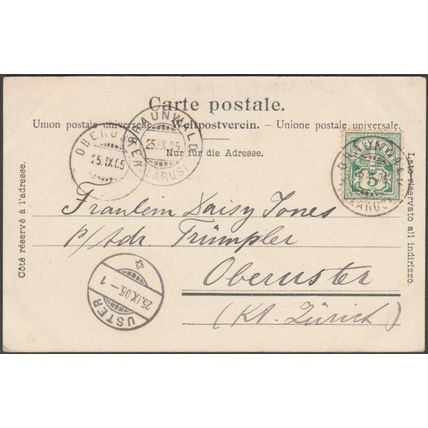 Carte postale.
Union postale universelle. Weltpostverein. - Unione postale universale.
Nur für die Adresse.
Côté réservé à l'adresse.
Lato riservato all' indirizzo.
OBERUSTER
25.IX.05
BRAUNWALD
25.IX.05
(GLARUS)
BRAUNWALD
(GLARUS)
5
Fraulein Daisy Jones
p/Adr Trümpler
Oberuster
(Kt. Zürich)
USTER
25.IX.05.-1